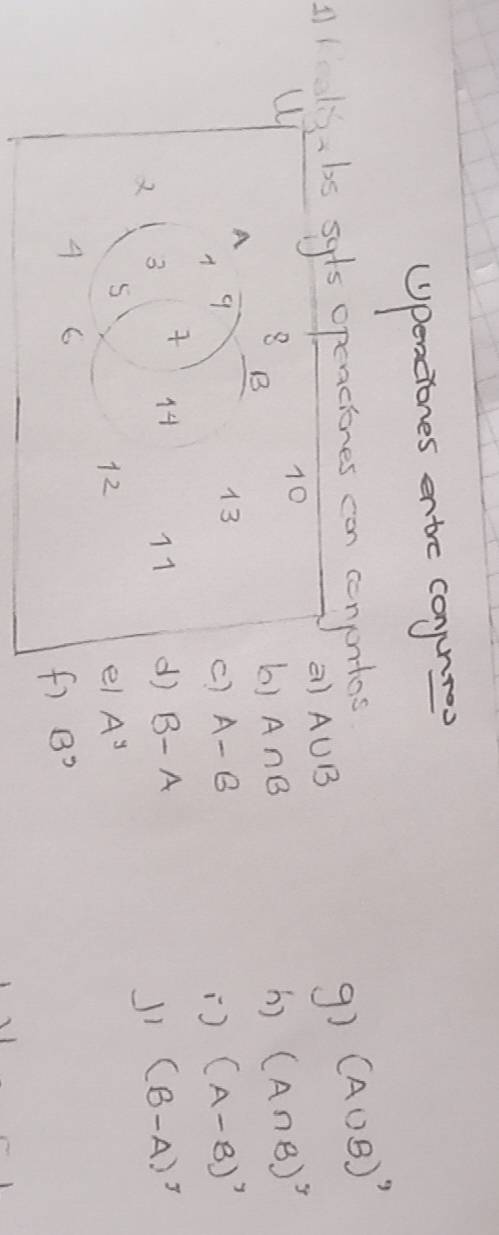 Operaciones entre conjuntos
1) Realiza los sgts operaciones con conjuntos.
U
8
10
A
B
1
9
13
2
3
7
14
11
5
12
4
6
a) A∪B
b) A∩B
c) A-B
d) B-A
e) A'
f) B'
g) (A∪B)'
h) (A∩B)'
i) (A-B)'
j) (B-A)'